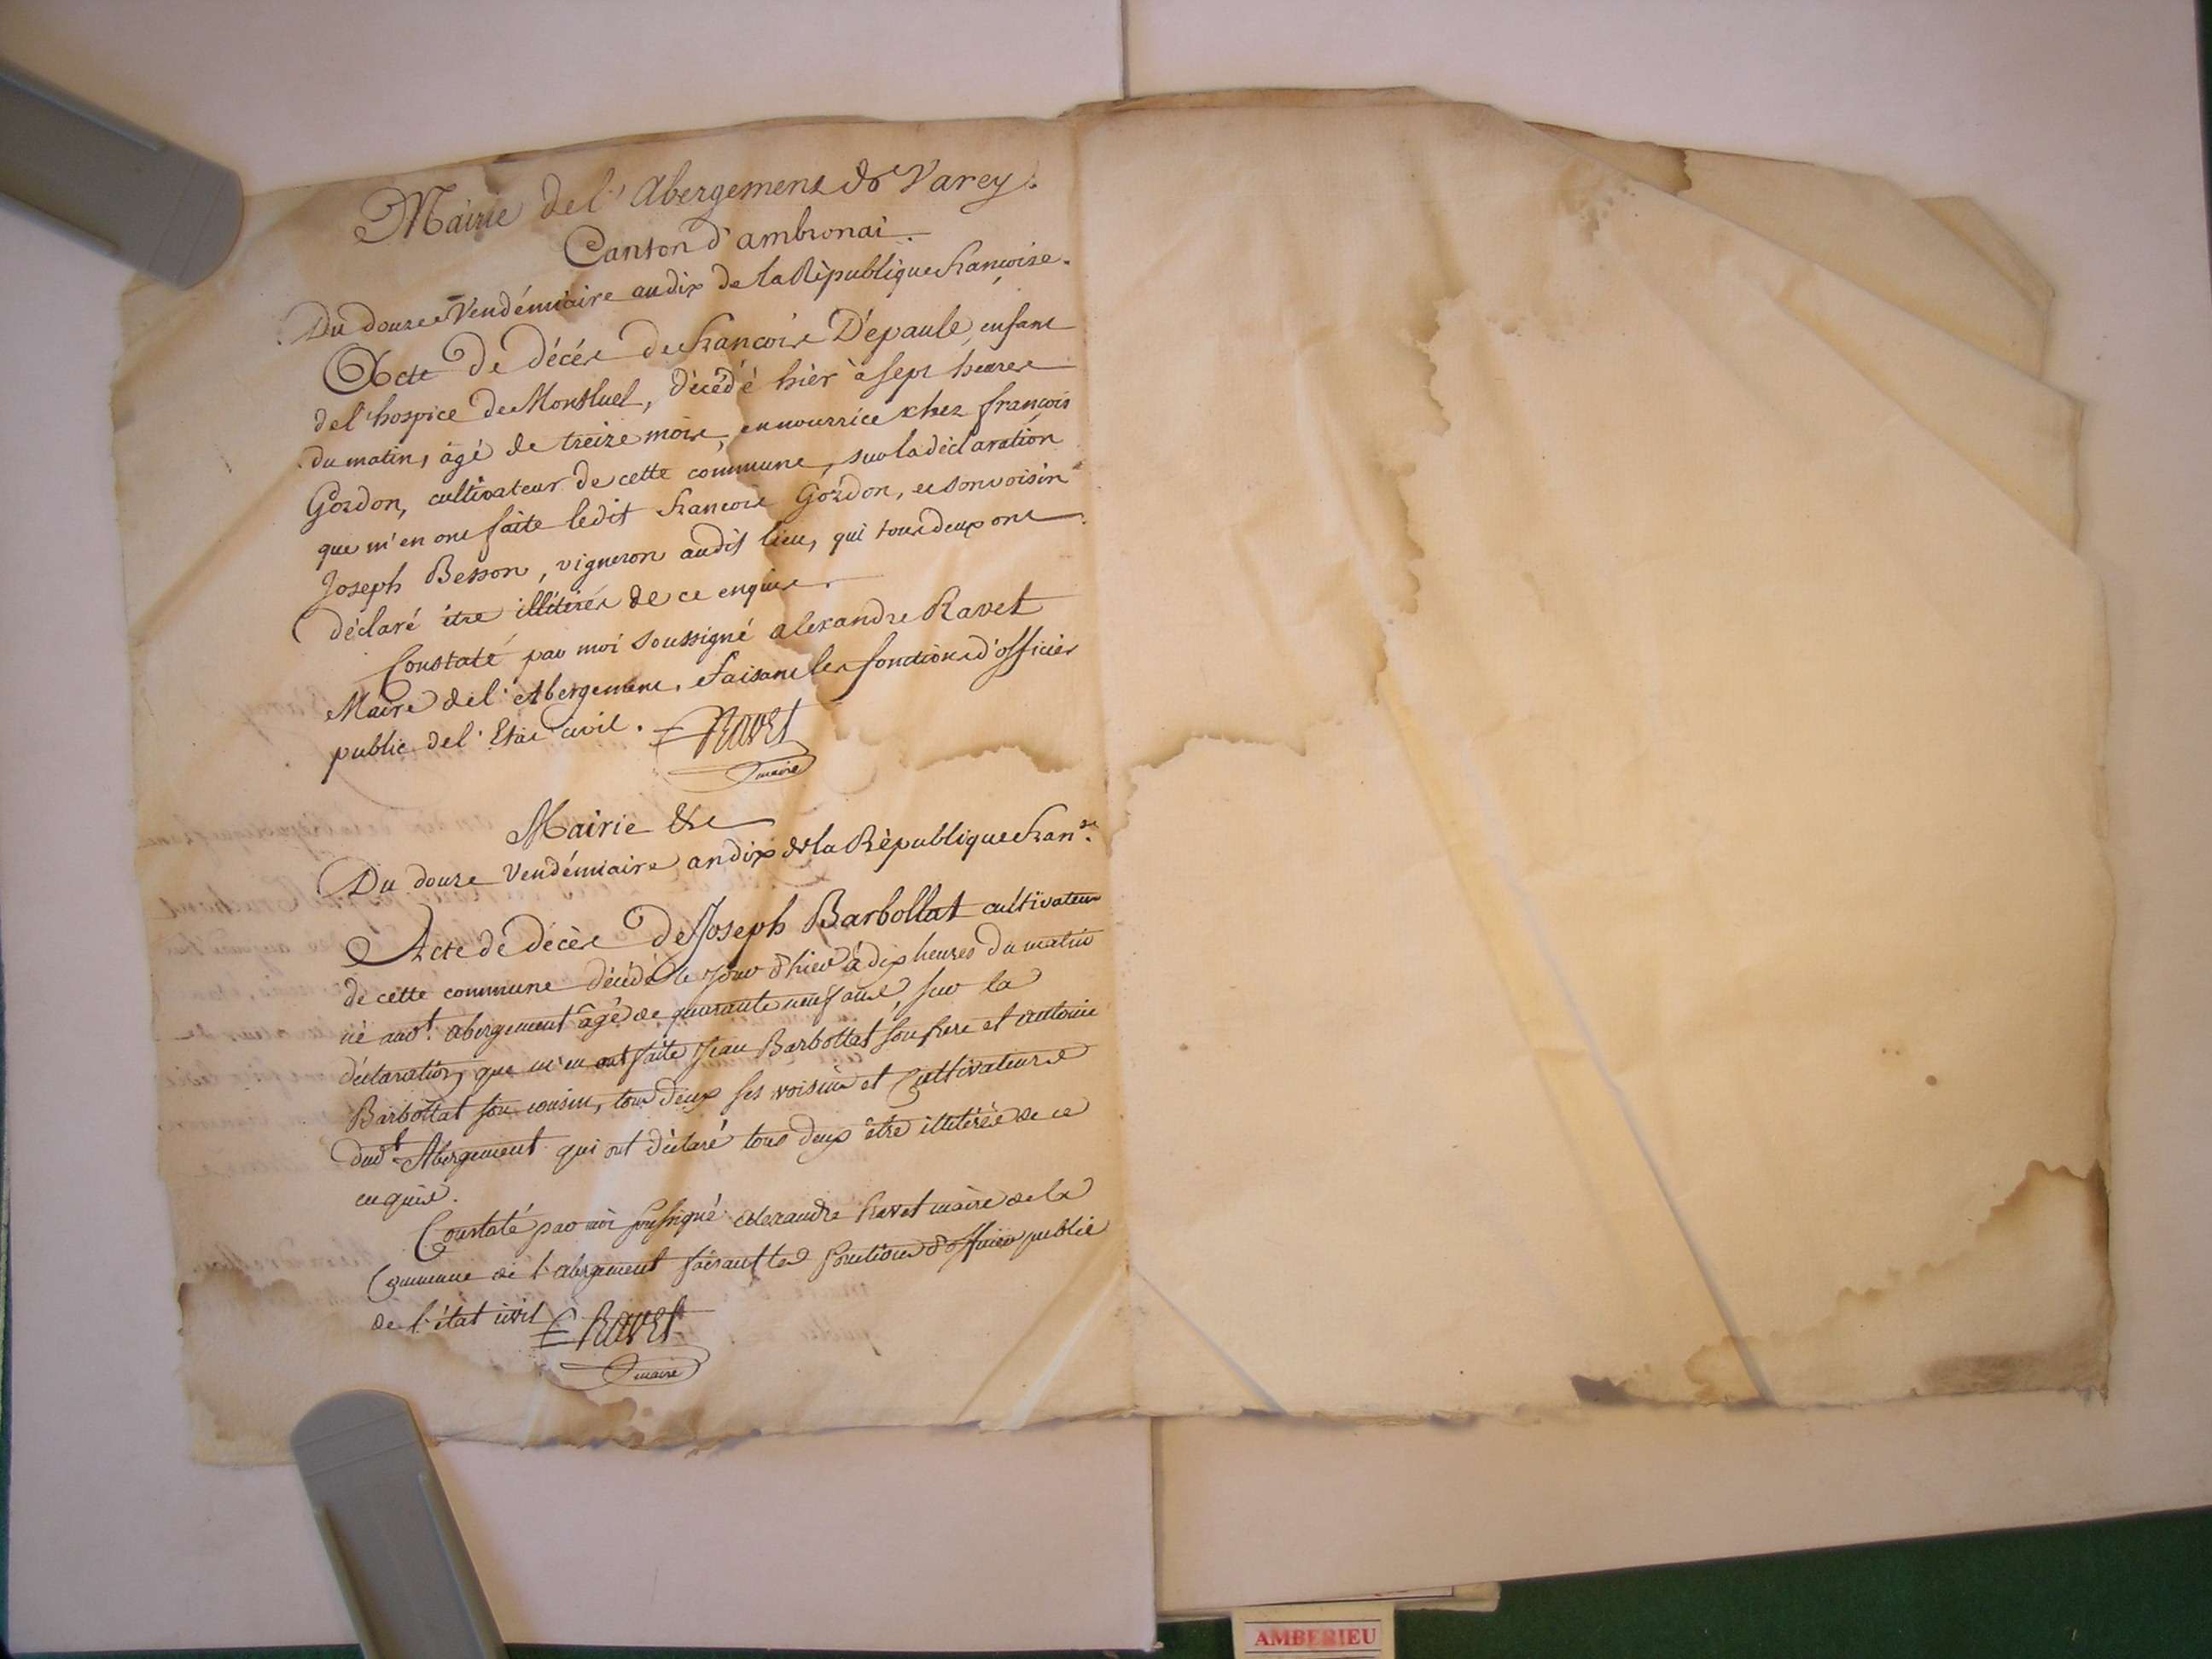 Mairie de l'Abergement de Varey.
Canton d'ambronai.
Du douze Vendémiaire an dix de la République françoise.
Acte de décès de François D'épaule, enfant
de l'hospice de Montluel, décédé hièr à sept heures
du matin, âgé de treize mois, en nourrice chez françois
Gordon, cultivateur de cette commune, sur la déclaration
que m'en ont faite ledit François Gordon, et son voisin
Joseph Besson, vigneron audit lieu, qui tous deux ont
déclaré être illitérés de ce enquis.
Constaté par moi soussigné alexandre Ravet
Maire de l'Abergement, faisant les fonctions d'officier
public de l'Etat civil. Ravet
maire
Mairie &c
Du douze Vendémiaire an dix de la République Fran.se
Acte de décès de Joseph Barbollat cultivateur
de cette commune décédé le jour d'hier à dix heures du matin
né aud.t abergement âgé de quarante neuf ans, sur la
déclaration, que m'en ont faite Jean Barbottat son frere et antoine
Barbottat son cousin, tous deux ses voisins et Cultivateurs
dud.t Abergement qui ont déclaré tous deux être illitérés de ce
enquis.
Constaté par moi soussigné alexandre Ravet maire de la
Commune de l'abergement faisant les fonctions d'officier public
de l'état civil Ravet
maire
AMBERIEU